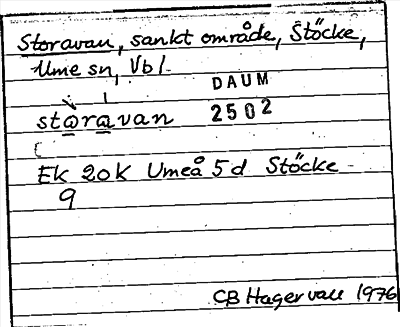 Storavan, sankt område, Stöcke,
Ume sn, Vbl.
DAUM
storavan 2502
Ek 20K Umeå 5d Stöcke
9
CB Hagervall 1976